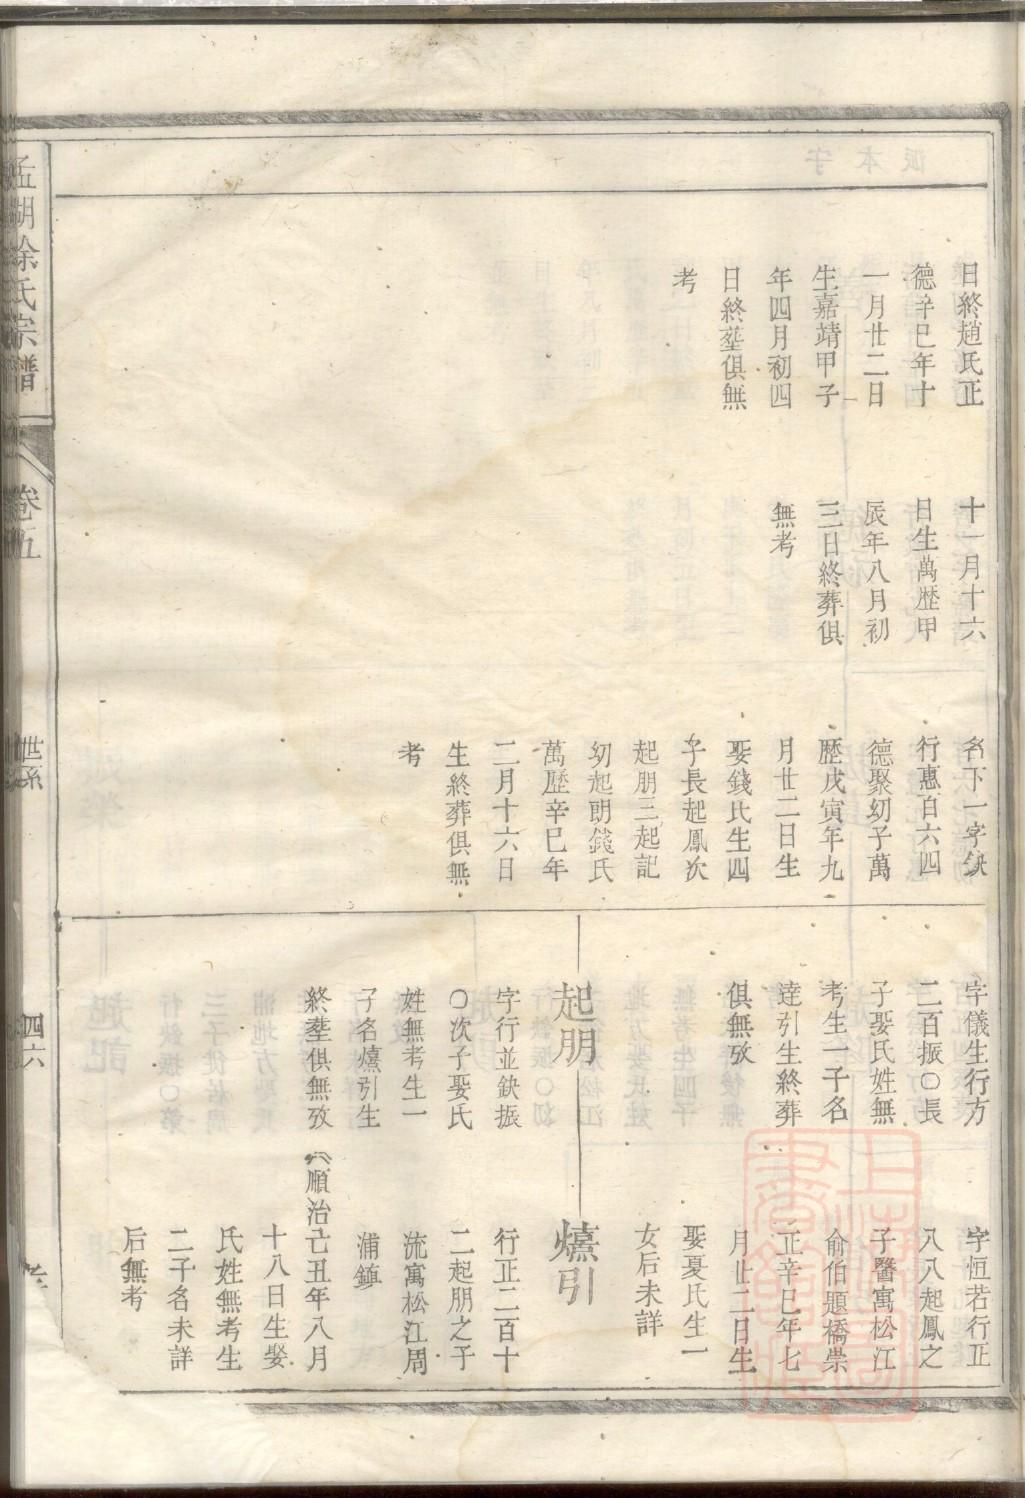 日終趙氏正
德辛巳年十
一月廿二日
生嘉靖甲子
年四月初四
日終塟俱無
考
十一月十六
日生萬歷甲
辰年八月初
三日終葬俱
無考
名下一字缺
行惠百六四
德聚幼子萬
歷戊寅年九
月廿二日生
娶錢氏生四
子長起鳳次
起朋三起記
幼起明錢氏
萬歷辛巳年
二月十六日
生終葬俱無
考
字儀生行方
二百振〇長
子娶氏姓無
考生一子名
達引生終葬
俱無攷
起朋
字行並缺振
〇次子娶氏
姓無考生一
子名燨引生
終塟俱無攷
字恒若行正
八八起鳳之
子醫寓松江
俞伯題橋崇
正辛巳年七
月廿二日生
娶夏氏生一
女后未詳
燨引
行正二百十
二起朋之子
流寓松江周
浦鎮
順治亡丑年八月
十八日生娶
氏姓無考生
二子名未詳
后無考
孟湖徐氏宗譜
卷五
世系
四六